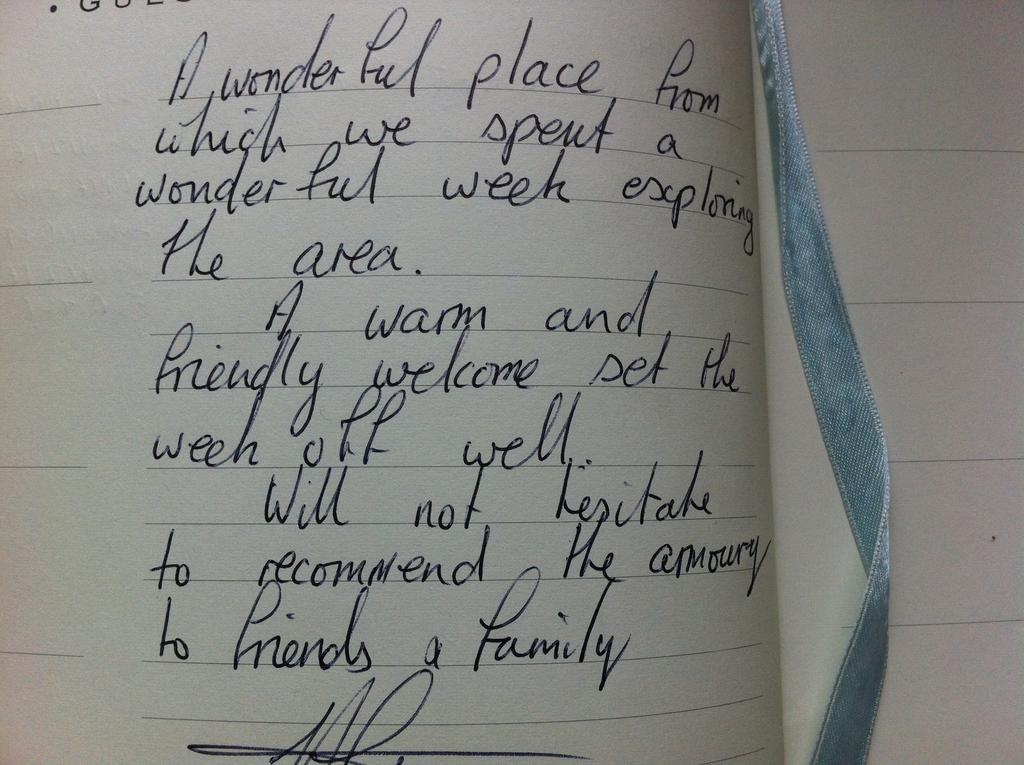 A wonderful place from
which we spent a
wonderful week exploring
the area.
A warm and
friendly welcome set the
week off well.
Will not hesitate
to recommend the armoury
to friends a family